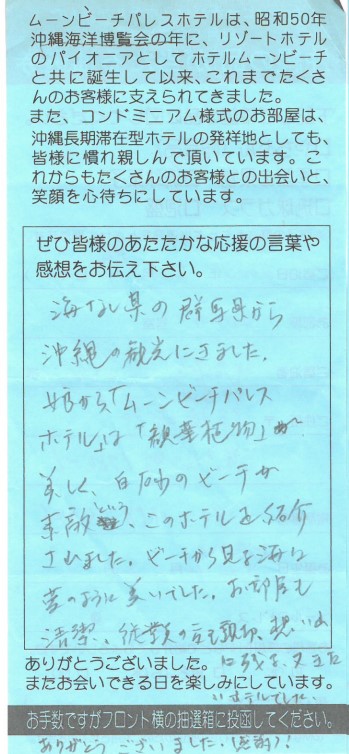 ムーンビーチパレスホテルは、昭和50年
沖縄海洋博覧会の年に、リゾートホテル
のパイオニアとしてホテルムーンビーチ
と共に誕生して以来、これまでたくさ
んのお客様に支えられてきました。
また、コンドミニアム様式のお部屋は、
沖縄長期滞在型ホテルの発祥地としても、
皆様に慣れ親しんで頂いています。こ
れからもたくさんのお客様との出会いと、
笑顔を心待ちにしています。
ぜひ皆様のあたたかな応援の言葉や
感想をお伝え下さい。
海なし県の群馬県から
沖縄の観光にきました。
から「ムーンビーチパレス
ホテル」は「観葉植物」が
美しく、白砂のビーチが
素敵という、このホテルを紹介
されました。ビーチから見る海は
夢のように美いでした。お部屋も
清潔、従業の言も親切、想い出
ありがとうございました。に残る、又きた
またお会いできる日を楽しみにしています。
いホテルでした。
お手数ですがフロント横の抽選箱に投函してください。
ありがとうございました。(感謝)!